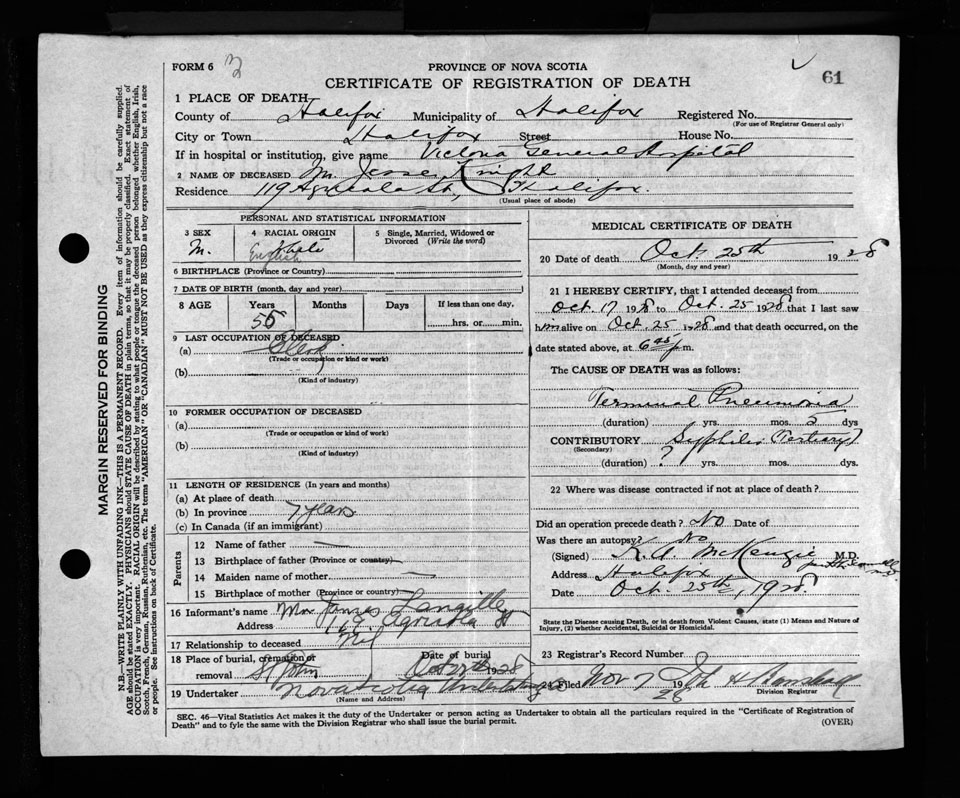 FORM 6
PROVINCE OF NOVA SCOTIA
61
CERTIFICATE OF REGISTRATION OF DEATH
1 PLACE OF DEATH
County of Halifax Municipality of Halifax Registered No.
(For use of Registrar General only)
City or Town Halifax Street House No.
If in hospital or institution, give name Victoria General Hospital
2 NAME OF DECEASED Mr. Jesse Knight
Residence 119 Agricola St., Halifax.
(Usual place of abode)
PERSONAL AND STATISTICAL INFORMATION
3 SEX 4 RACIAL ORIGIN 5 Single, Married, Widowed or Divorced (Write the word)
M. White
English
6 BIRTHPLACE (Province or Country)
7 DATE OF BIRTH (month, day and year)
8 AGE Years Months Days If less than one day,
55 hrs. or min.
9 LAST OCCUPATION OF DECEASED
(a) Clerk
(Trade or occupation or kind or work)
(b)
(Kind of industry)
10 FORMER OCCUPATION OF DECEASED
(a)
(Trade or occupation or kind of work)
(b)
(Kind of industry)
11 LENGTH OF RESIDENCE (In years and months)
(a) At place of death
(b) In province 7 years
(c) In Canada (if an immigrant)
Parents
12 Name of father —
13 Birthplace of father (Province or country) —
14 Maiden name of mother —
15 Birthplace of mother (Province or country) —
16 Informant's name Mrs James Langille
Address 119 Agricola St
17 Relationship to deceased Nil
18 Place of burial, cremation or removal St John Date of burial Oct 27th 1928
19 Undertaker Nova Scotia Undertaking
(Name and Address)
MEDICAL CERTIFICATE OF DEATH
20 Date of death Oct. 25th 1928
(Month, day and year)
21 I HEREBY CERTIFY, that I attended deceased from
Oct. 17 1928 to Oct. 25 1928 that I last saw
him alive on Oct. 25 1928 and that death occurred, on the
date stated above, at 6 45 p.m.
The CAUSE OF DEATH was as follows:
Terminal Pneumonia
(duration) yrs. mos. 5 dys
CONTRIBUTORY Syphilis (Tertiary)
(Secondary)
(duration) ? yrs. mos. dys.
22 Where was disease contracted if not at place of death?
Did an operation precede death? No Date of
Was there an autopsy? No
(Signed) K.A. McKenzie M.D.
Address Halifax
Date Oct. 25th, 1928.
State the Disease causing Death, or in death from Violent Causes, state (1) Means and Nature of
Injury, (2) whether Accidental, Suicidal or Homicidal.
23 Registrar's Record Number
Filed Nov 7 1928
Division Registrar
SEC. 46—Vital Statistics Act makes it the duty of the Undertaker or person acting as Undertaker to obtain all the particulars required in the "Certificate of Registration of
Death" and to fyle the same with the Division Registrar who shall issue the burial permit.
(OVER)
MARGIN RESERVED FOR BINDING
N.B.—WRITE PLAINLY WITH UNFADING INK—THIS IS A PERMANENT RECORD. Every item of information should be carefully supplied.
AGE should be stated EXACTLY. PHYSICIANS should STATE CAUSE OF DEATH in plain terms, so that it may be properly classified. Exact statement of
OCCUPATION is very important. RACIAL ORIGIN will be described by stating to what people or tongue the deceased person belonged whether English, Irish,
Scotch, French, German, Russian, Ruthenian, etc. The terms "AMERICAN" OR "CANADIAN" MUST NOT BE USED as they express citizenship but not a race
or people. See instructions on back of Certificate.